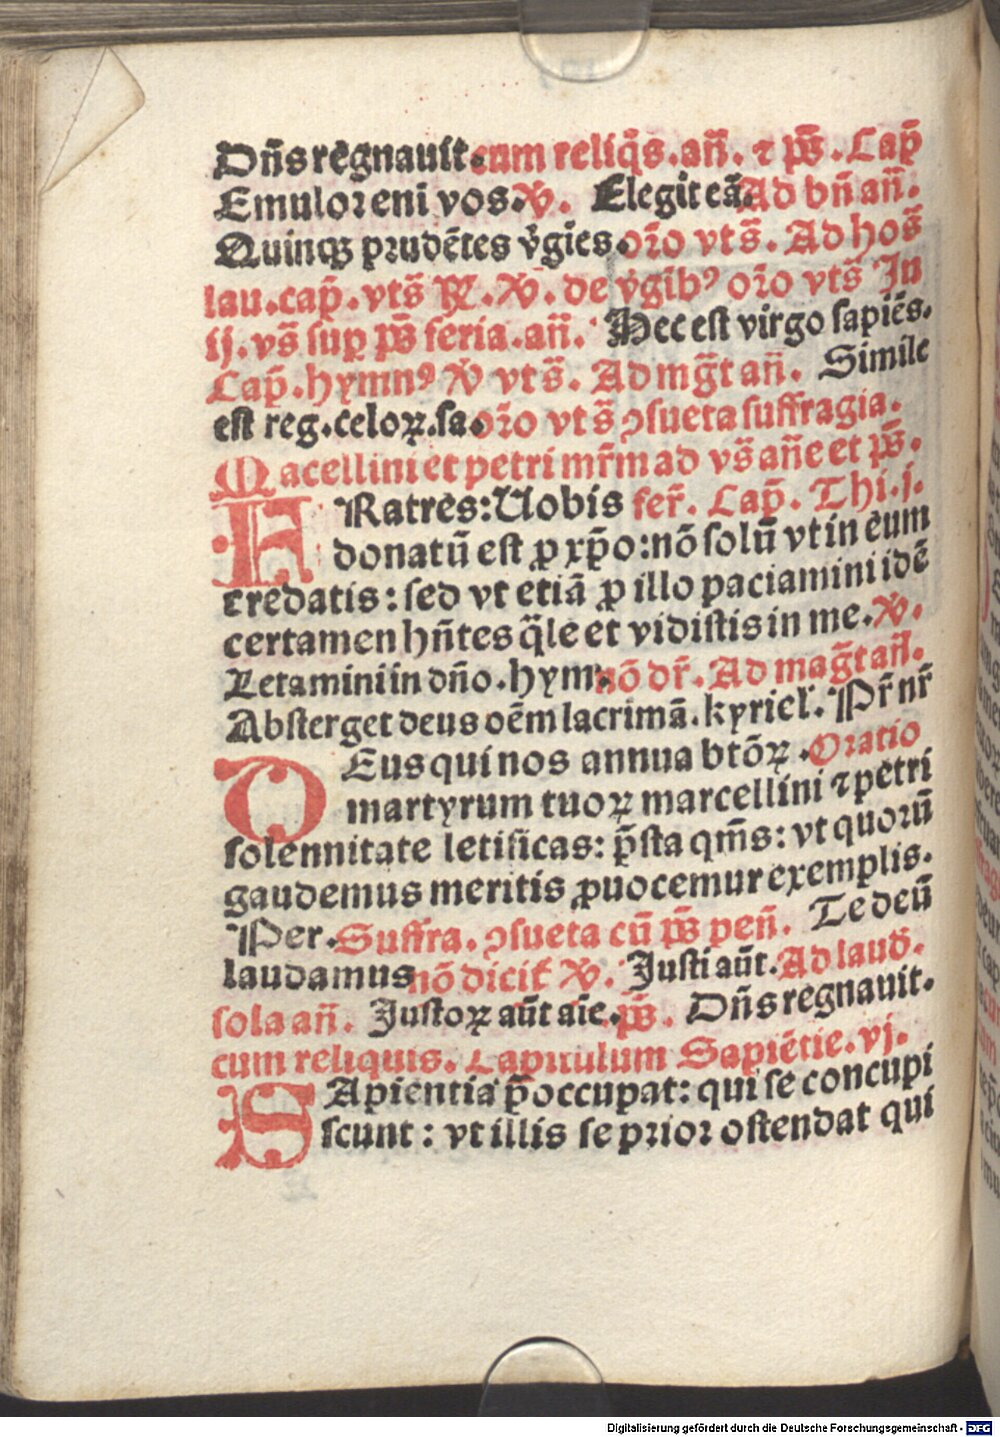 Dn̄s regnauit. cum reliq̄s. an̄. ⁊ p̄s. Cap̄
Emulor eni vos. ꝟ. Elegit eā. Ad bn̄ an̄.
Quinqꝫ prudētes ṽgies. or̄o vts̄. Ad hos̄
lau. cap̄. vts̄ ꝶ. ꝟ. de ṽgibꝰ or̄o vts̄ Jn
ij. vs̄ sup p̄s feria. an̄. Hec est virgo sapiēs.
Cap̄. hymnꝰ ꝟ vts̄. Ad mḡt an̄. Simile
est reg. celoꝝ. sa. or̄o vts̄ ꝯsueta suffragia.
Macellini et petri mr̄m ad vs̄ an̄e et p̄s.
FRatres: Uobis fer̄. Cap̄. Thi. j.
donatū est ꝓ xp̄o: nō solū vt in eum
credatis: sed vt etiā ꝓ illo paciamini idē
certamen hn̄tes q̄le et vidistis in me. ꝟ.
Letamini in dn̄o. hym. nō dr̄. Ad maḡt an̄.
Absterget deus oēm lacrimā. kyriel̄. Pr̄ nr̄
DEus qui nos annua btōꝝ. Oratio
martyrum tuoꝝ marcellini ⁊ petri
solennitate letificas: p̄sta qm̄s: vt quorū
gaudemus meritis ꝓuocemur exemplis.
Per. Suffra. ꝯsueta cū p̄s pen̄. Te deū
laudamus nō dicit̄ ꝟ. Justi aūt. Ad laud̄.
sola an̄. Justoꝝ aūt aīe. p̄s. Dn̄s regnauit.
cum reliquis. Capitulum Sapiētie. vj.
SApientia p̄occupat: qui se concupi
scunt: vt illis se prior ostendat qui
Digitalisierung gefördert durch die Deutsche Forschungsgemeinschaft - DFG